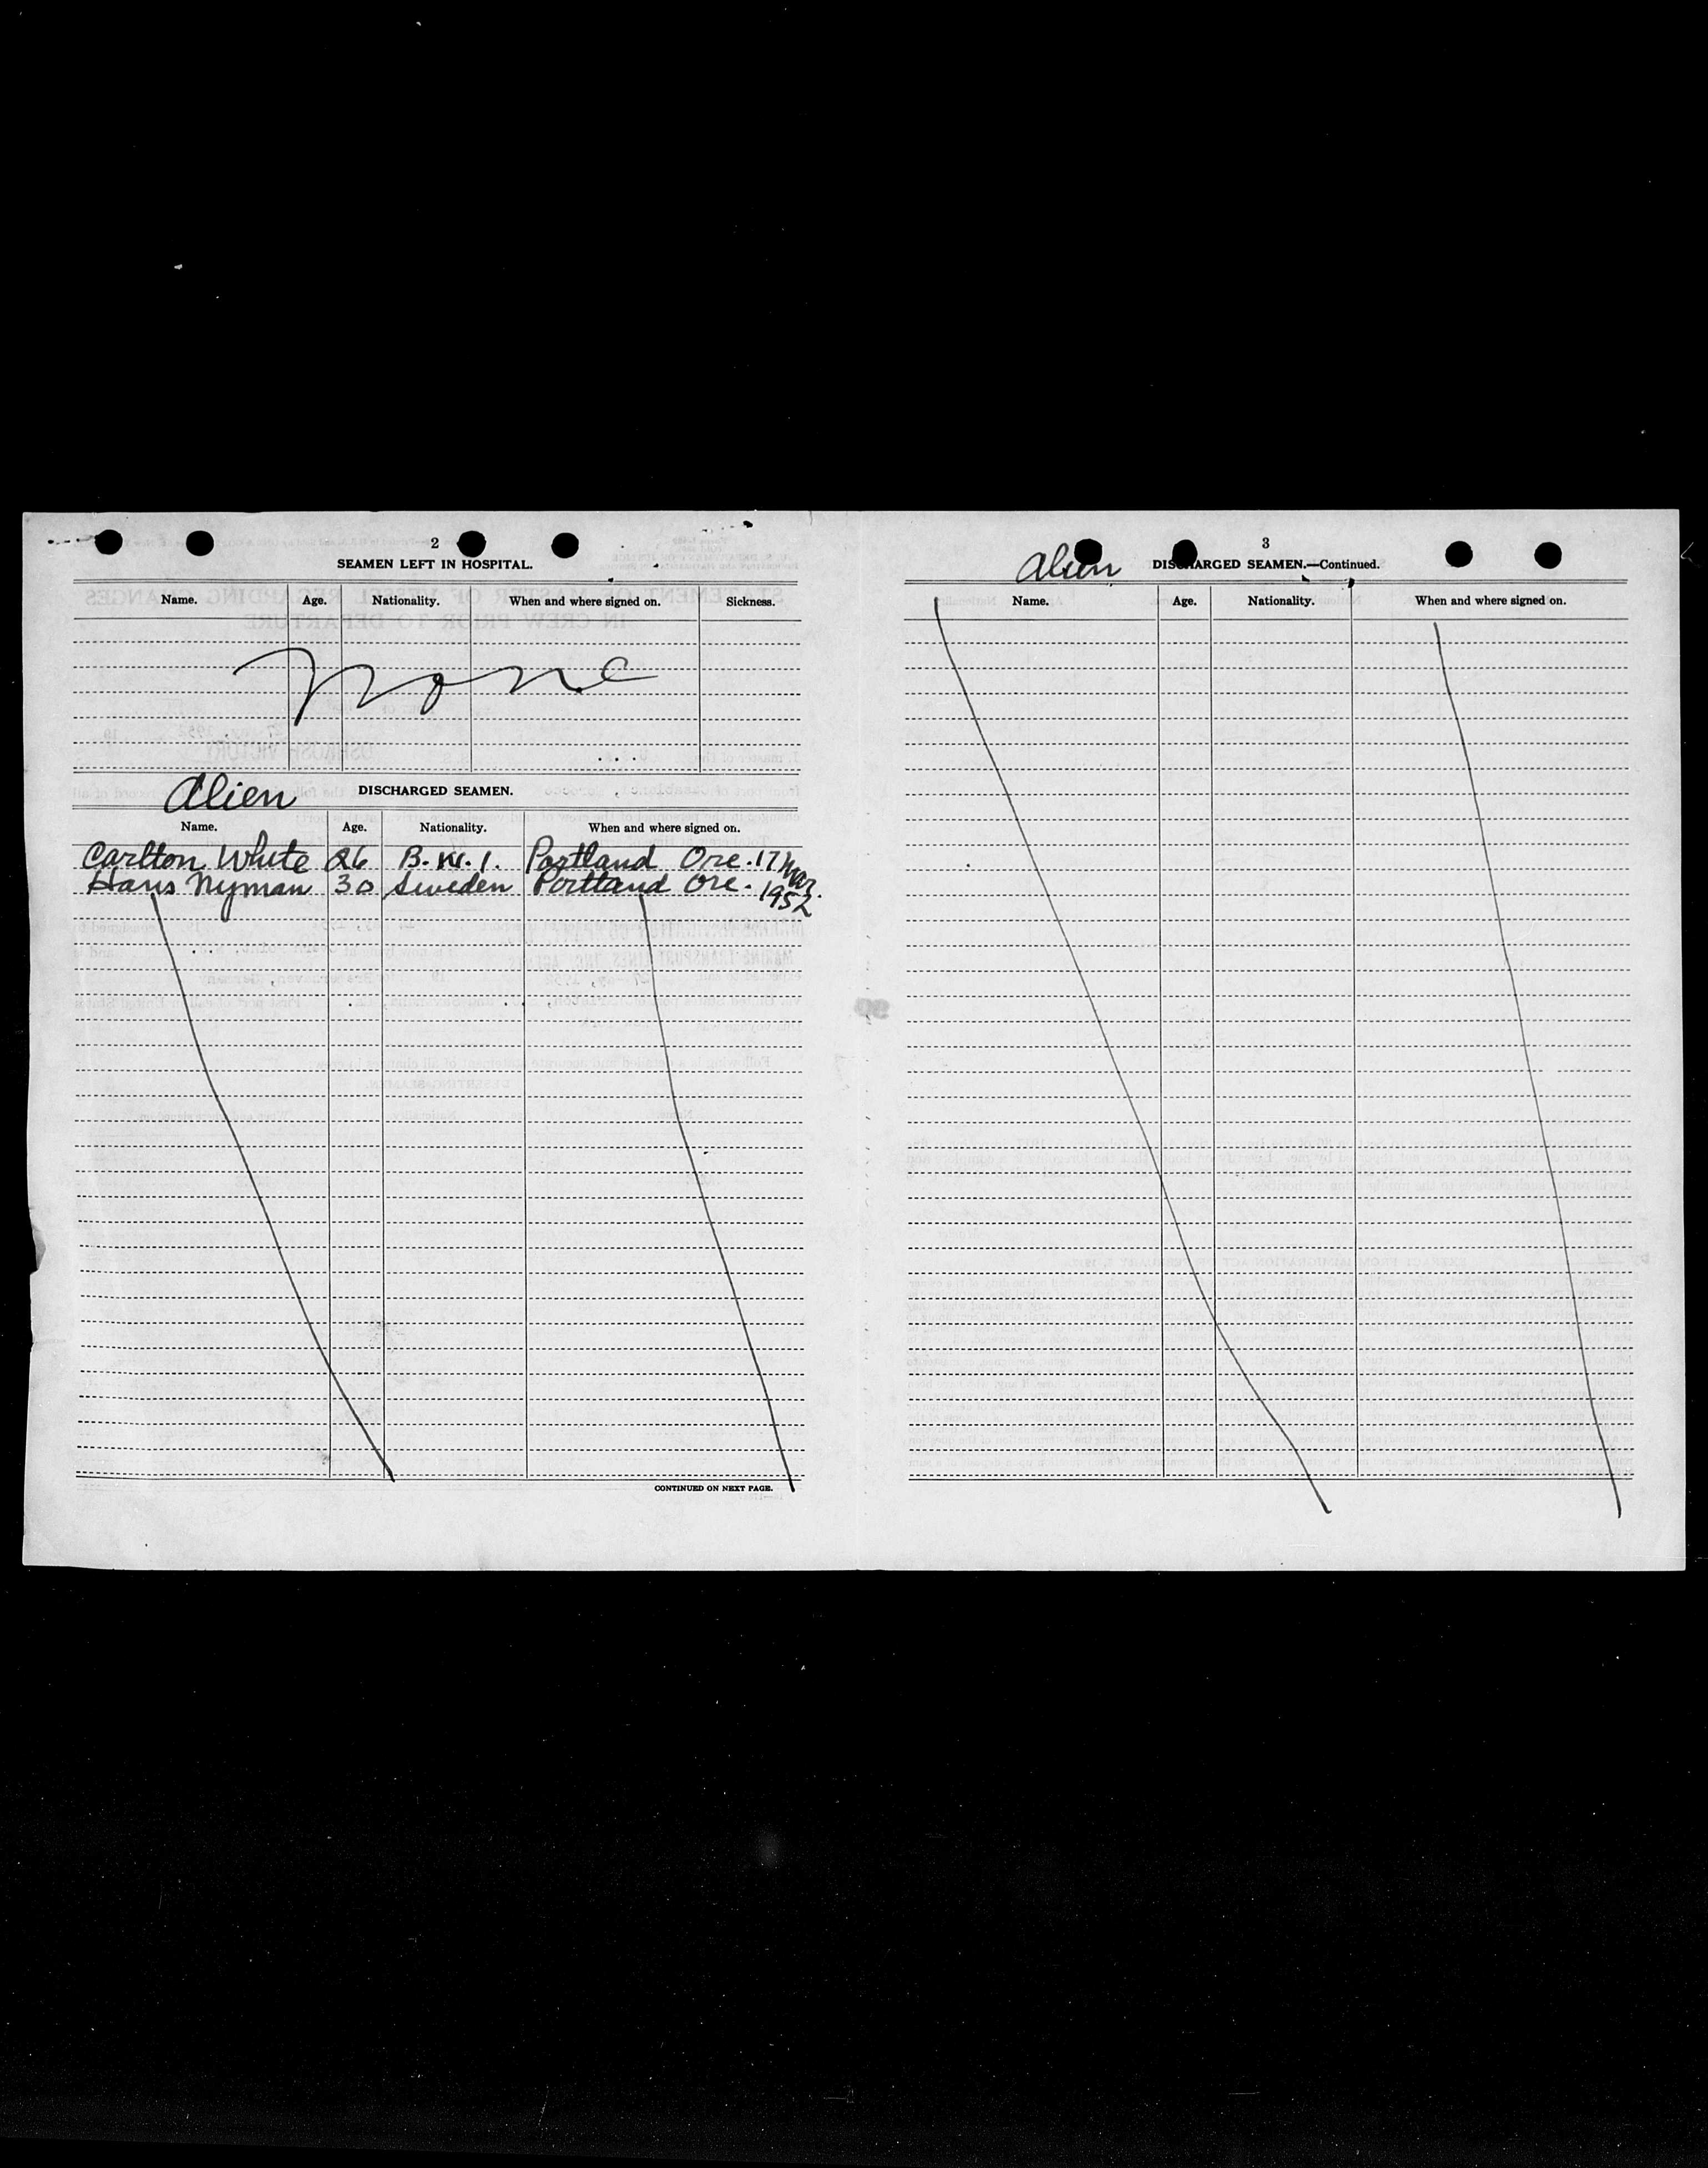 2
SEAMEN LEFT IN HOSPITAL.
Name. Age. Nationality. When and where signed on. Sickness.
None
Alien DISCHARGED SEAMEN.
Name. Age. Nationality. When and where signed on.
Carlton White 26 B.W.I. Portland Ore. 17 Mar.
Hans Nyman 30 Sweden Portland Ore. 1952
CONTINUED ON NEXT PAGE.
3
Alien DISCHARGED SEAMEN.—Continued.
Name. Age. Nationality. When and where signed on.